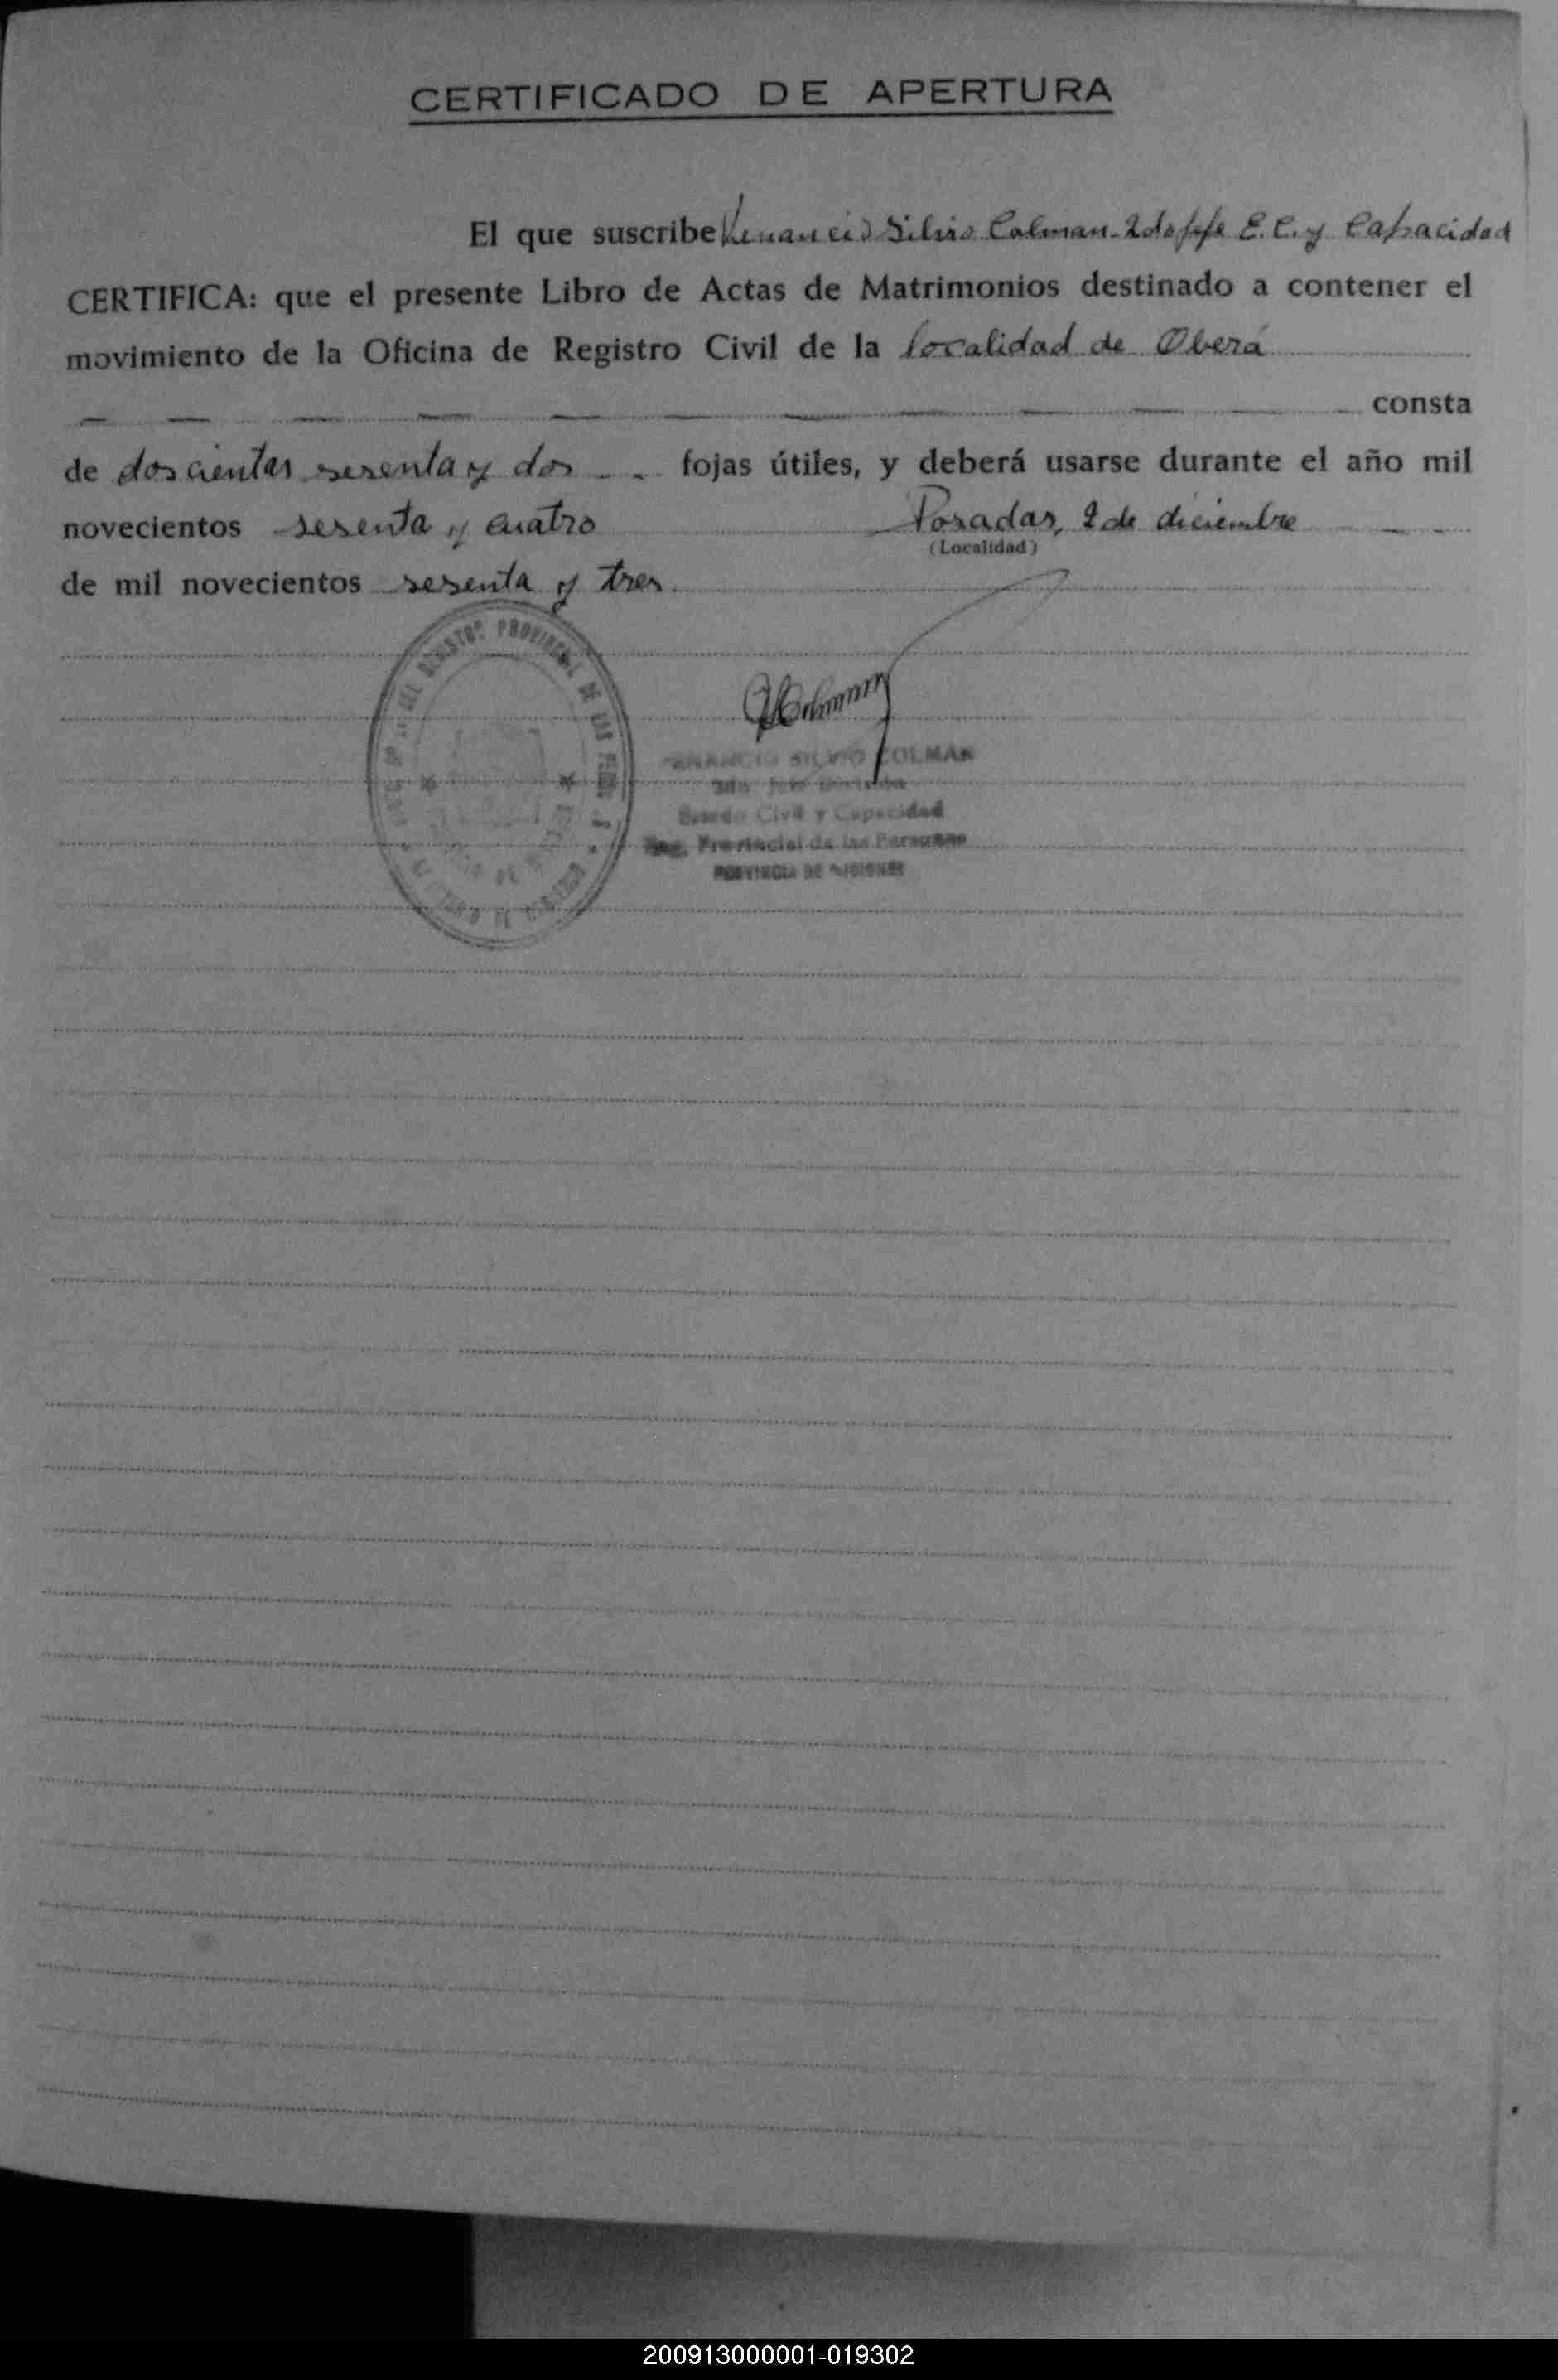 CERTIFICADO DE APERTURA
El que suscribe Venancio Silvio Colman-2do jefe E.C. y Capacidad
CERTIFICA: que el presente Libro de Actas de Matrimonios destinado a contener el
movimiento de la Oficina de Registro Civil de la localidad de Oberá
consta
de doscientas sesenta y dos fojas útiles, y deberá usarse durante el año mil
novecientos sesenta y cuatro Posadas, 2 de diciembre
(Localidad)
de mil novecientos sesenta y tres
PROVINCIAL DE LAS
VENANCIO SILVIO COLMAN
2do Jefe División
Estado Civil y Capacidad
Reg. Provincial de las Personas
PROVINCIA DE MISIONES
200913000001-019302